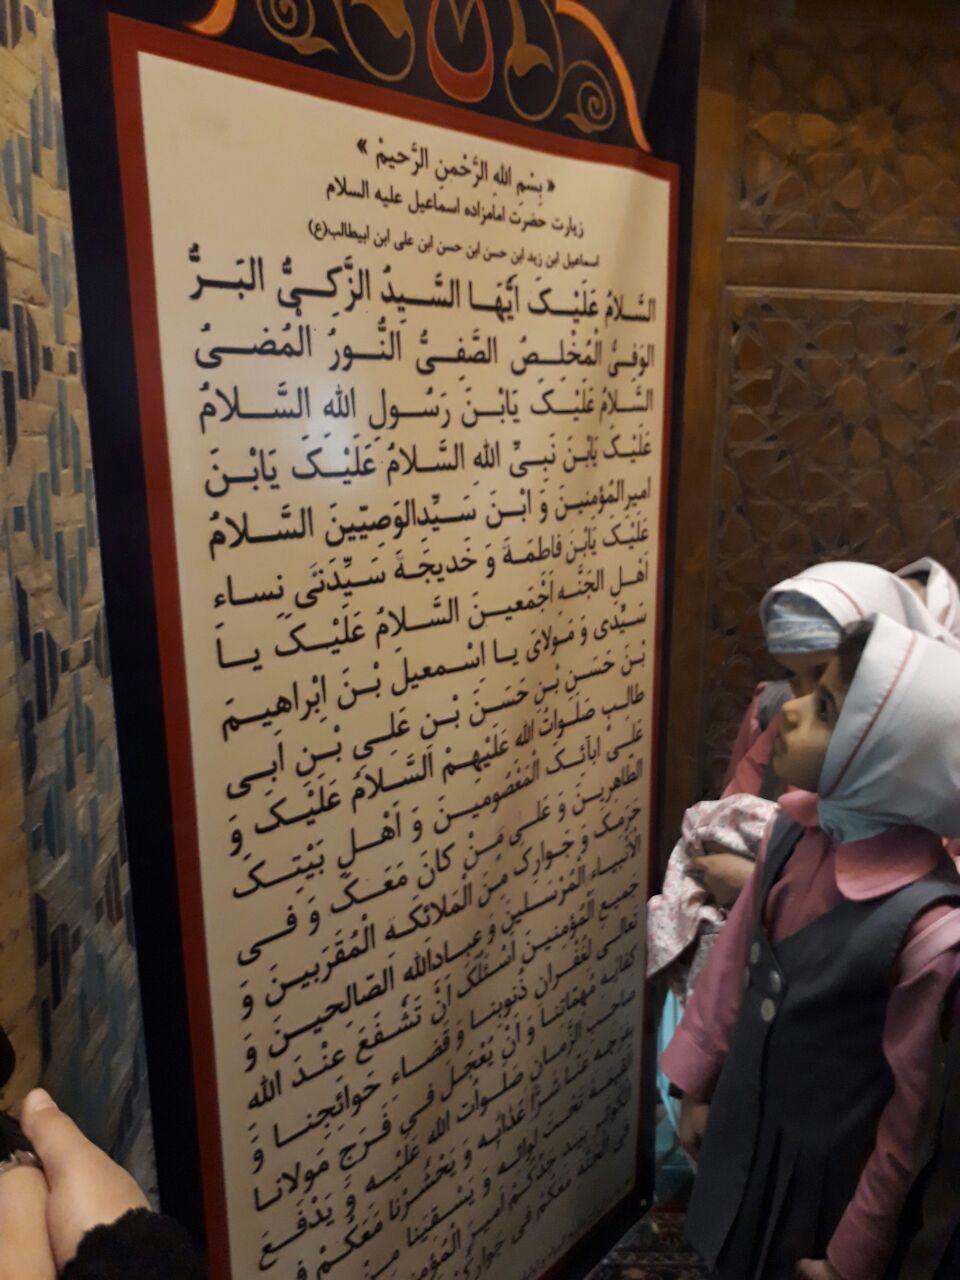 « بِسْمِ اللهِ الرَّحْمنِ الرَّحیمْ »
زیارت حضرت امامزاده اسماعیل علیه السلام
اسماعیل ابن زید ابن حسن ابن حسن ابن علی ابن ابیطالب(ع)
السَّلامُ عَلَیْکَ اَیُّهَا السَّیِدُ الزَّکِیُّ البَرُّ
الوَفِیُّ الْمُخْلِصُ الصَّفِیُّ النُّورُ المُضیُ
السَّلامُ عَلَیْکَ یَابْنَ رَسُولِ اللهِ السَّلامُ
عَلَیْکَ یَابْنَ نَبِیِّ اللهِ السَّلامُ عَلَیْکَ یَابْنَ
امیرِالمُؤمِنینَ وَ ابْنَ سَیِّدِالوَصِیّینَ السَّلامُ
عَلَیْکَ یَابْنَ فاطِمَةَ وَ خَدیجَةَ سَیِّدَتَیْ نِساءِ
اَهْلِ الجَنَّهِ اَجْمَعینَ السَّلامُ عَلَیْکَ یا
سَیِّدی وَ مَولایَ یا اسْمعیلَ بْنَ اِبْراهیمَ
بْنَ حَسَنِ بْنِ حَسَنَ بْنِ عَلِی بْنِ اَبی
طالِبِ صَلَواتُ الله عَلَیْهِمْ السَّلامُ عَلَیْکَ وَ
عَلیْ ابآئِکَ الْمَعْصُومینَ وَ اَهْلِ بَیْتِکَ
الطّاهِرینَ وَ عَلی مَنْ کانَ مَعَکَ وَ فی
حَرَمِکَ وَ جَوارِکَ مِنَ الْمَلائکَهِ الْمُقَرَبینَ وَ
الأَنْبیاءِ الْمُرْسَلینَ وَ عِبادَالله الصّالِحینَ وَ
جَمیعِ الْمُؤمِنینَ اَسْئَلُکَ اَنْ تَشْفَعَ عِنْدَ اللهِ
تَعالی لِغُفْرانِ ذُنُوبِنا وَ قَضاءِ حَوائِجِنا وَ
کِفایَهِ مُهِمّاتِنا وَ اَنْ یُعَجِلَ فی فَرَجِ مَولانا
صاحِبِ الزَّمانِ صَلَواتُ الله عَلَیْهِ وَ یَدْفَعَ
بِفَرَجِهِ عَنّا شَرَّ وَ یَحْشُرَنا مَعَکُمْ فی
تَحْتَ لِوائِهِ وَ یَسْقِیَنا مِنْ
الْکَوثَرِ بِیَدِ جَدِّکُمْ اَمیرِ
فی الْجَنَّهِ مَعَکُمْ فی